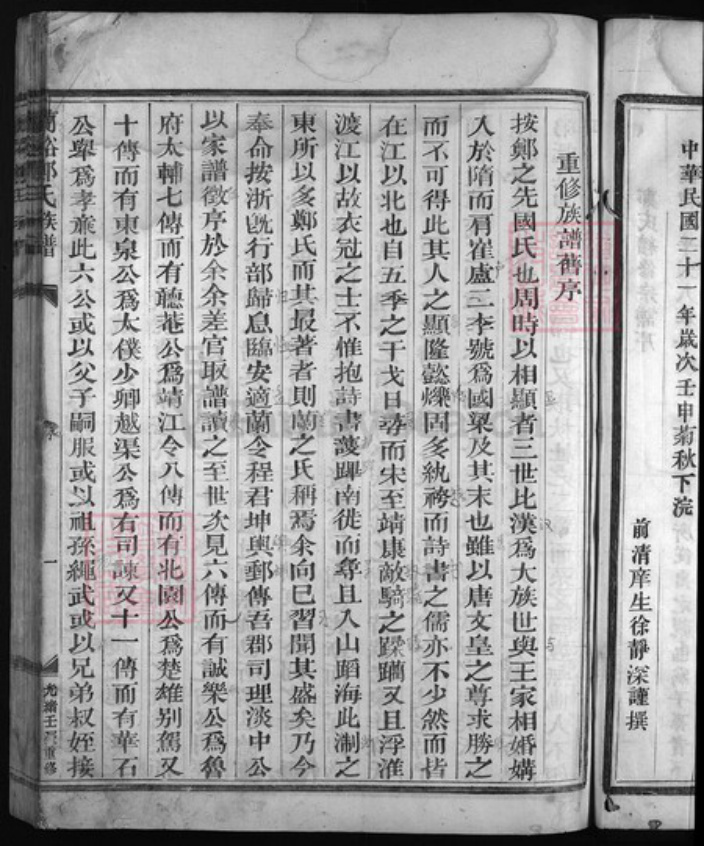 中華民國二十一年歲次壬申菊秋下浣
前清庠生徐靜深謹撰
重修族譜舊序
按鄭之先國氏也周時以相顯者三世比漢爲大族世與王家相婚媾
入於隋而肩崔盧二李號爲國梁及其末也雖以唐文皇之尊求勝之
而不可得此其人之顯隆懿爍固多紈袴而詩書之儒亦不少然而皆
在江以北也自五季之干戈日尋而宋至靖康敵騎之蹂躪又且浮淮
渡江以故衣冠之士不惟抱詩書護蹕南徙而尋且入山蹈海此淛之
東所以多鄭氏而其最著者則蘭之氏稱焉余向已習聞其盛矣乃今
奉命按浙旣行部歸息臨安適蘭令程君坤輿郵傳吾郡司理淡中公
以家譜徵序於余余差官取譜讀之至世次見六傳而有誠樂公爲魯
府太輔七傳而有聽菴公爲靖江令八傳而有北園公爲楚雄别駕又
十傳而有東泉公爲太僕少卿越渠公爲右司諫又十一傳而有華石
公舉爲孝廉此六公或以父子嗣服或以祖孫繩武或以兄弟叔姪接
蘭谿鄭氏族譜
序
一
光緒壬 重修